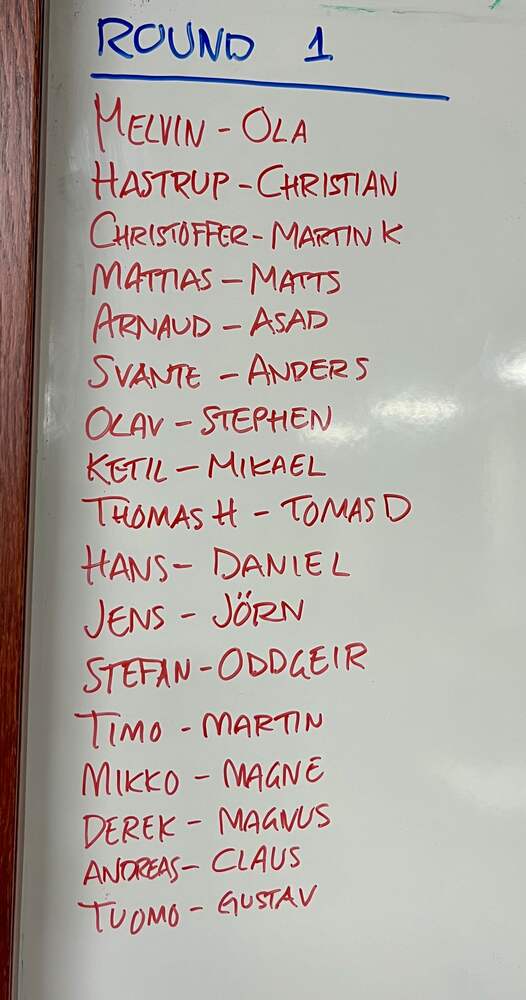 ROUND 1
MELVIN - OLA
HASTRUP - CHRISTIAN
CHRISTOFFER - MARTIN K
MATTIAS - MATTS
ARNAUD - ASAD
SVANTE - ANDERS
OLAV - STEPHEN
KETIL - MIKAEL
THOMAS H - TOMAS D
HANS - DANIEL
JENS - JÖRN
STEFAN - ODDGEIR
TIMO - MARTIN
MIKKO - MAGNE
DEREK - MAGNUS
ANDREAS - CLAUS
TUOMO - GUSTAV